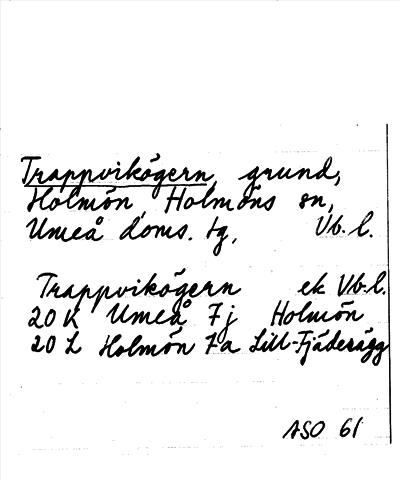 Trappvikögern, grund,
Holmön, Holmöns sn,
Umeå doms. tg, Vb. l.
Trappvikögern ek Vb. l.
20 K Umeå 7j Holmön
20 L Holmön 7a Lill-Fjäderägg
ASO 61